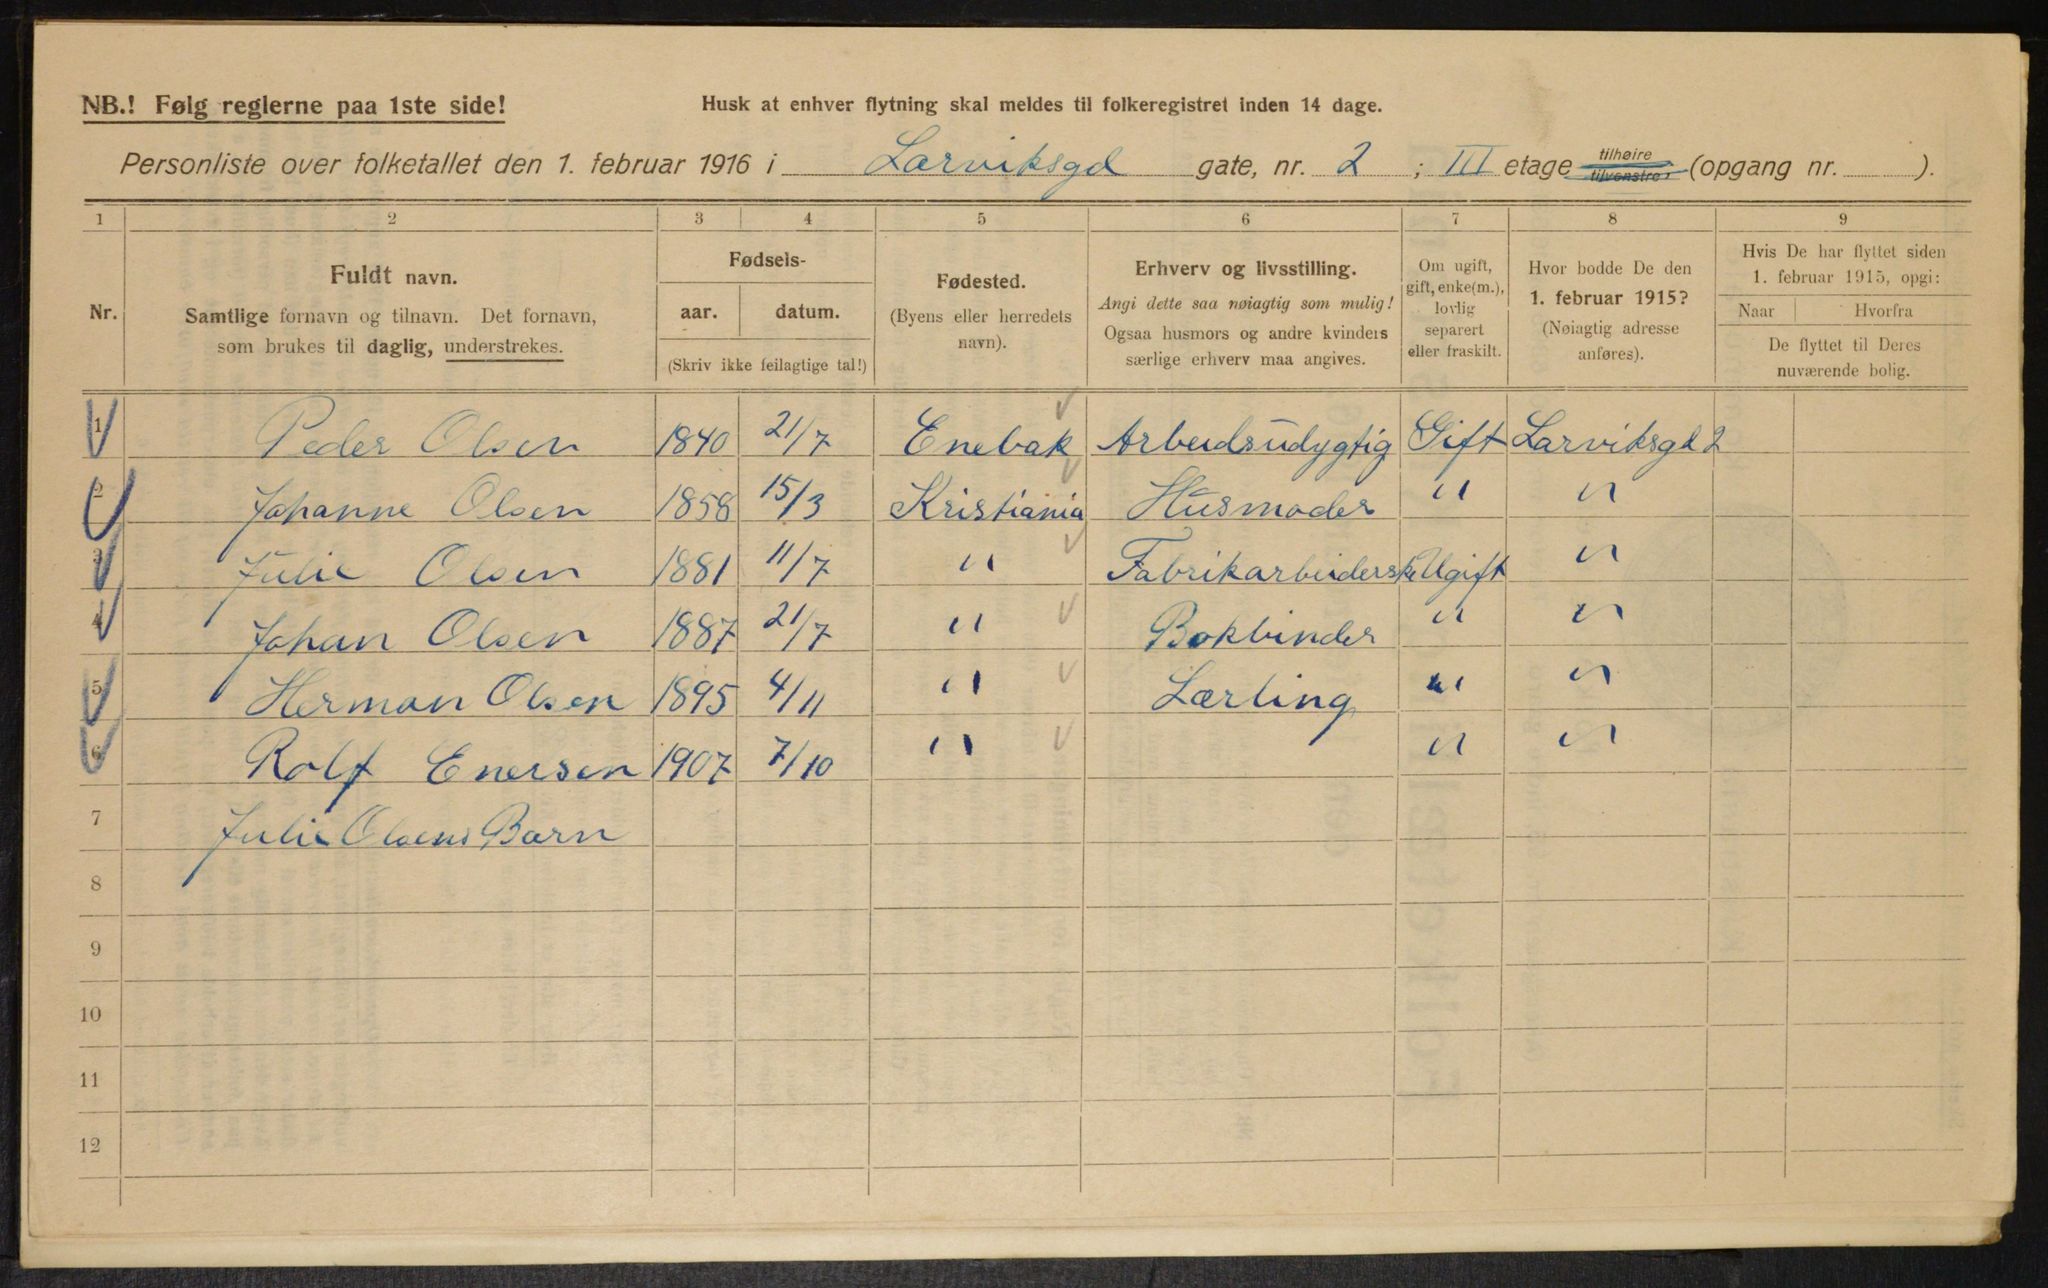 NB.! Følg reglerne paa 1ste side!
Husk at enhver flytning skal meldes til folkeregistret inden 14 dage.
Personliste over folketallet den 1. februar 1916 i Larviksgd gate, nr. 2 ; III etage tilhøire tilvenstre (opgang nr. ).
1 2 3 4 5 6 7 8 9
Nr.
Fuldt navn.
Samtlige fornavn og tilnavn. Det fornavn,
som brukes til daglig, understrekes.
Fødsels-
aar. datum.
(Skriv ikke feilagtige tal!)
Fødested.
(Byens eller herredets
navn).
Erhverv og livsstilling.
Angi dette saa nøiagtig som mulig!
Ogsaa husmors og andre kvinders
særlige erhverv maa angives.
Om ugift,
gift, enke(m.),
lovlig
separert
eller fraskilt.
Hvor bodde De den
1. februar 1915?
(Nøiagtig adresse
anføres).
Hvis De har flyttet siden
1. februar 1915, opgi:
Naar Hvorfra
De flyttet til Deres
nuværende bolig.
1 Peder Olsen 1840 21/7 Enebak Arbeidsudygtig Gift Larviksgd 2
2 Johanne Olsen 1858 15/3 Kristiania Husmoder " "
3 Julie Olsen 1881 11/7 " Fabrikarbeiderske Ugift "
4 Johan Olsen 1887 21/7 " Bokbinder " "
5 Herman Olsen 1895 4/11 " Lærling " "
6 Rolf Enersen 1907 7/10 " " "
7 Julie Olsens Barn
8
9
10
11
12